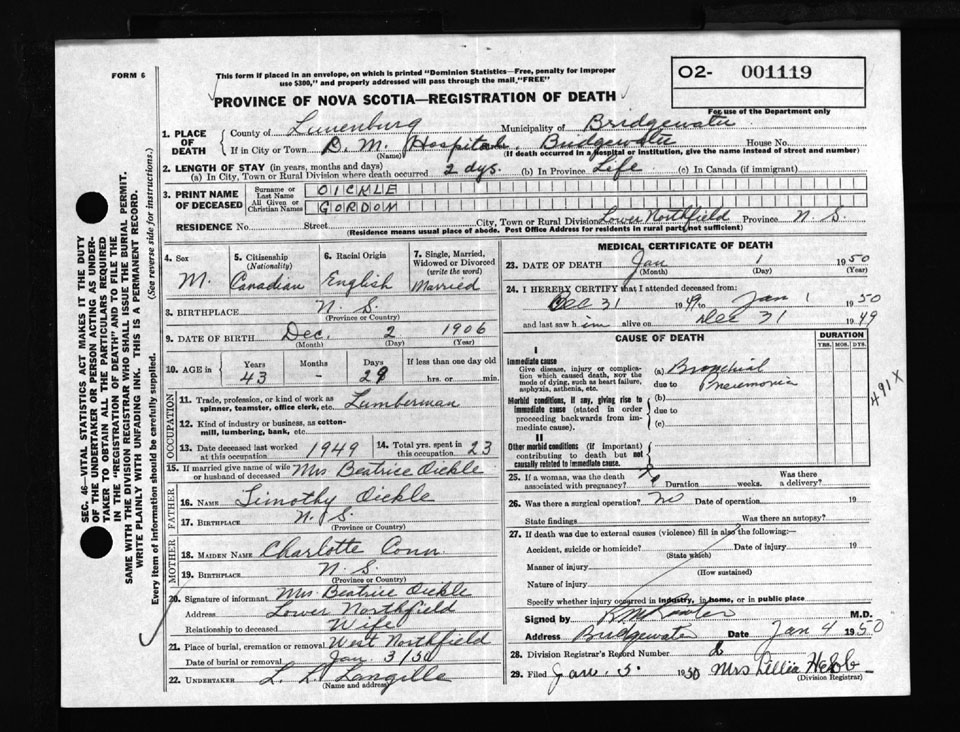 FORM 6
This form if placed in an envelope, on which is printed "Dominion Statistics—Free, penalty for improper
use $300," and properly addressed will pass through the mail "FREE"
O2- 001119
For use of the Department only
PROVINCE OF NOVA SCOTIA—REGISTRATION OF DEATH
1. PLACE OF DEATH
County of Lunenburg Municipality of Bridgewater
If in City or Town D. M. Hospital, Bridgewater House No.
(Name) (If death occurred in a hospital or institution, give the name instead of street and number)
2. LENGTH OF STAY (in years, months and days)
(a) In City, Town or Rural Division where death occurred 2 dys. (b) In Province Life (c) In Canada (if immigrant)
3. PRINT NAME OF DECEASED
Surname or Last Name OICKLE
All Given or Christian Names GORDON
RESIDENCE No. Street City, Town or Rural Division Lower Northfield Province N. S.
(Residence means usual place of abode. Post Office Address for residents in rural parts not sufficient)
4. Sex M.
5. Citizenship (Nationality) Canadian
6. Racial Origin English
7. Single, Married, Widowed or Divorced (write the word) Married
8. BIRTHPLACE N. S.
(Province or Country)
9. DATE OF BIRTH Dec. 2 1906
(Month) (Day) (Year)
10. AGE in Years 43 Months - Days 29 If less than one day old hrs. or min.
OCCUPATION
11. Trade, profession, or kind of work as spinner, teamster, office clerk, etc. Lumberman
12. Kind of industry or business, as cotton-mill, lumbering, bank, etc.
13. Date deceased last worked at this occupation 1949
14. Total yrs. spent in this occupation 23
15. If married give name of wife or husband of deceased Mrs Beatrice Oickle
FATHER
16. NAME Timothy Oickle
17. BIRTHPLACE N. S.
(Province or Country)
MOTHER
18. MAIDEN NAME Charlotte Conn
19. BIRTHPLACE N. S.
(Province or Country)
20. Signature of informant Mrs. Beatrice Oickle
Address Lower Northfield
Relationship to deceased Wife
21. Place of burial, cremation or removal West Northfield
Date of burial or removal Jan 3/50
22. UNDERTAKER L. L. Langille
(Name and address)
MEDICAL CERTIFICATE OF DEATH
23. DATE OF DEATH Jan 1 1950
(Month) (Day) (Year)
24. I HEREBY CERTIFY that I attended deceased from:
Dec 31 1949 to Jan 1 1950
and last saw him alive on Dec 31 1949
CAUSE OF DEATH
DURATION
YRS. MOS. DYS.
I
Immediate cause
Give disease, injury or complication which caused death, not the mode of dying, such as heart failure, asphyxia, asthenia, etc.
(a) Bronchial
due to Pneumonia
491X
Morbid conditions, if any, giving rise to immediate cause (stated in order proceeding backwards from immediate cause).
(b)
due to
(c)
II
Other morbid conditions (if important) contributing to death but not causally related to immediate cause.
25. If a woman, was the death associated with pregnancy? Duration weeks. Was there a delivery?
26. Was there a surgical operation? no Date of operation 19
State findings Was there an autopsy?
27. If death was due to external causes (violence) fill in also the following:—
Accident, suicide or homicide? Date of injury 19
(State which)
Manner of injury
(How sustained)
Nature of injury
Specify whether injury occurred in industry, in home, or in public place
Signed by M.D.
Address Bridgewater Date Jan 4 1950
28. Division Registrar's Record Number
29. Filed Jan. 5. 1950 Mrs Lillia Hebb
(Division Registrar)
SEC. 46—VITAL STATISTICS ACT MAKES IT THE DUTY
OF THE UNDERTAKER OR PERSON ACTING AS UNDER-
TAKER TO OBTAIN ALL THE PARTICULARS REQUIRED
IN THE "REGISTRATION OF DEATH" AND TO FILE THE
SAME WITH THE DIVISION REGISTRAR WHO SHALL ISSUE THE BURIAL PERMIT.
WRITE PLAINLY WITH UNFADING INK. THIS IS A PERMANENT RECORD.
Every item of Information should be carefully supplied. (See reverse side for instructions.)